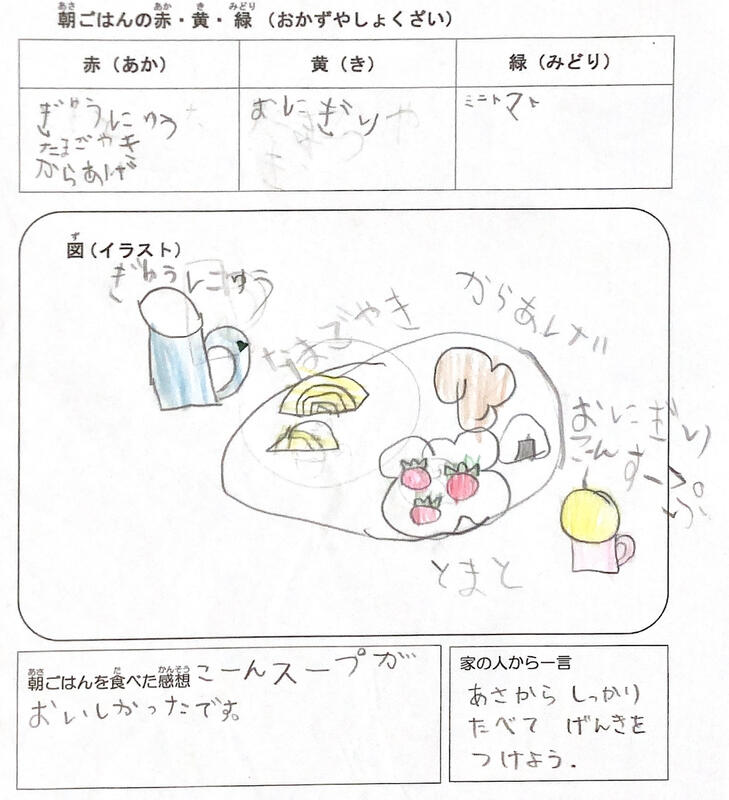 朝ごはんの赤・黄・緑（おかずやしょくざい）
赤（あか）
黄（き）
緑（みどり）
ぎゅうにゅう
たまごやき
からあげ
おにぎり
ミニトマト
図（イラスト）
ぎゅうにゅう
たまごやき
からあげ
おにぎり
こーんすーぷ
とまと
朝ごはんを食べた感想 こーんスープが
おいしかったです。
家の人から一言
あさから しっかり
たべて げんきを
つけよう.